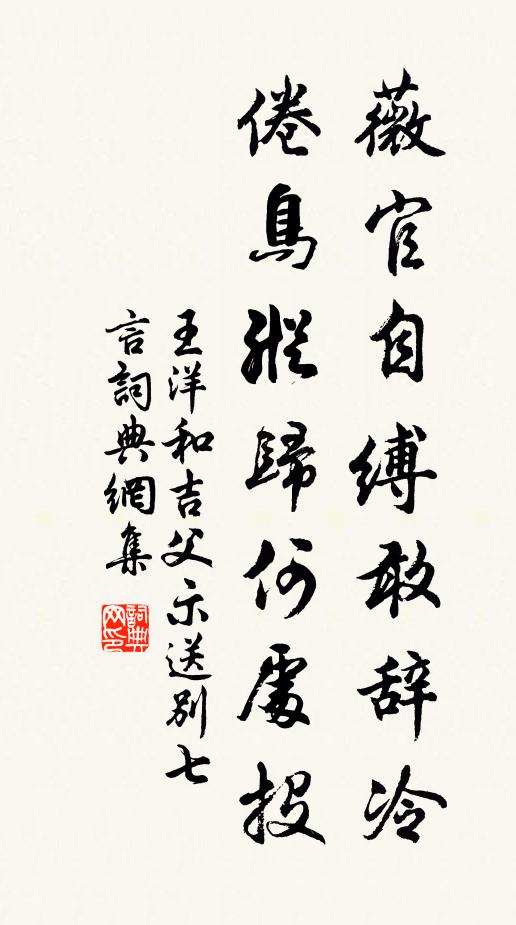 薇官自缚敢辞冷
倦鳥縱歸何處投
王洋和吉父示送别七
言詞典網集
詞典网印